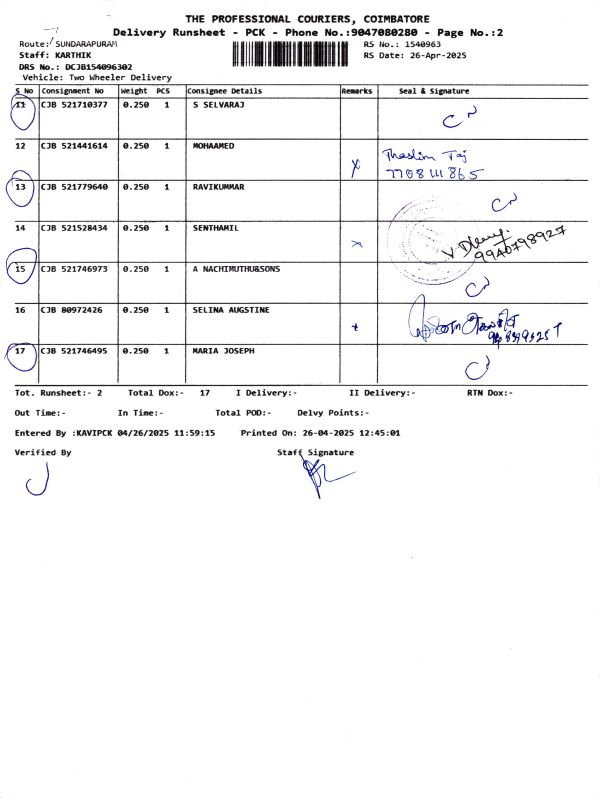 THE PROFESSIONAL COURIERS, COIMBATORE
Delivery Runsheet - PCK - Phone No.:9047080280 - Page No.:2
Route: SUNDARAPURAM
RS No.: 1540963
Staff: KARTHIK
RS Date: 26-Apr-2025
DRS No.: DCJB154096302
Vehicle: Two Wheeler Delivery
S No Consignment No Weight PCS Consignee Details Remarks Seal & Signature
11 CJB 521710377 0.250 1 S SELVARAJ
12 CJB 521441614 0.250 1 MOHAAMED
Thaslim Taj
13 CJB 521779640 0.250 1 RAVIKUMMAR
14 CJB 521528434 0.250 1 SENTHAMIL
9940798927
15 CJB 521746973 0.250 1 A NACHIMUTHU&SONS
16 CJB 80972426 0.250 1 SELINA AUGSTINE
17 CJB 521746495 0.250 1 MARIA JOSEPH
Tot. Runsheet:- 2 Total Dox:- 17 I Delivery:- II Delivery:- RTN Dox:-
Out Time:- In Time:- Total POD:- Delvy Points:-
Entered By :KAVIPCK 04/26/2025 11:59:15 Printed On: 26-04-2025 12:45:01
Verified By Staff Signature